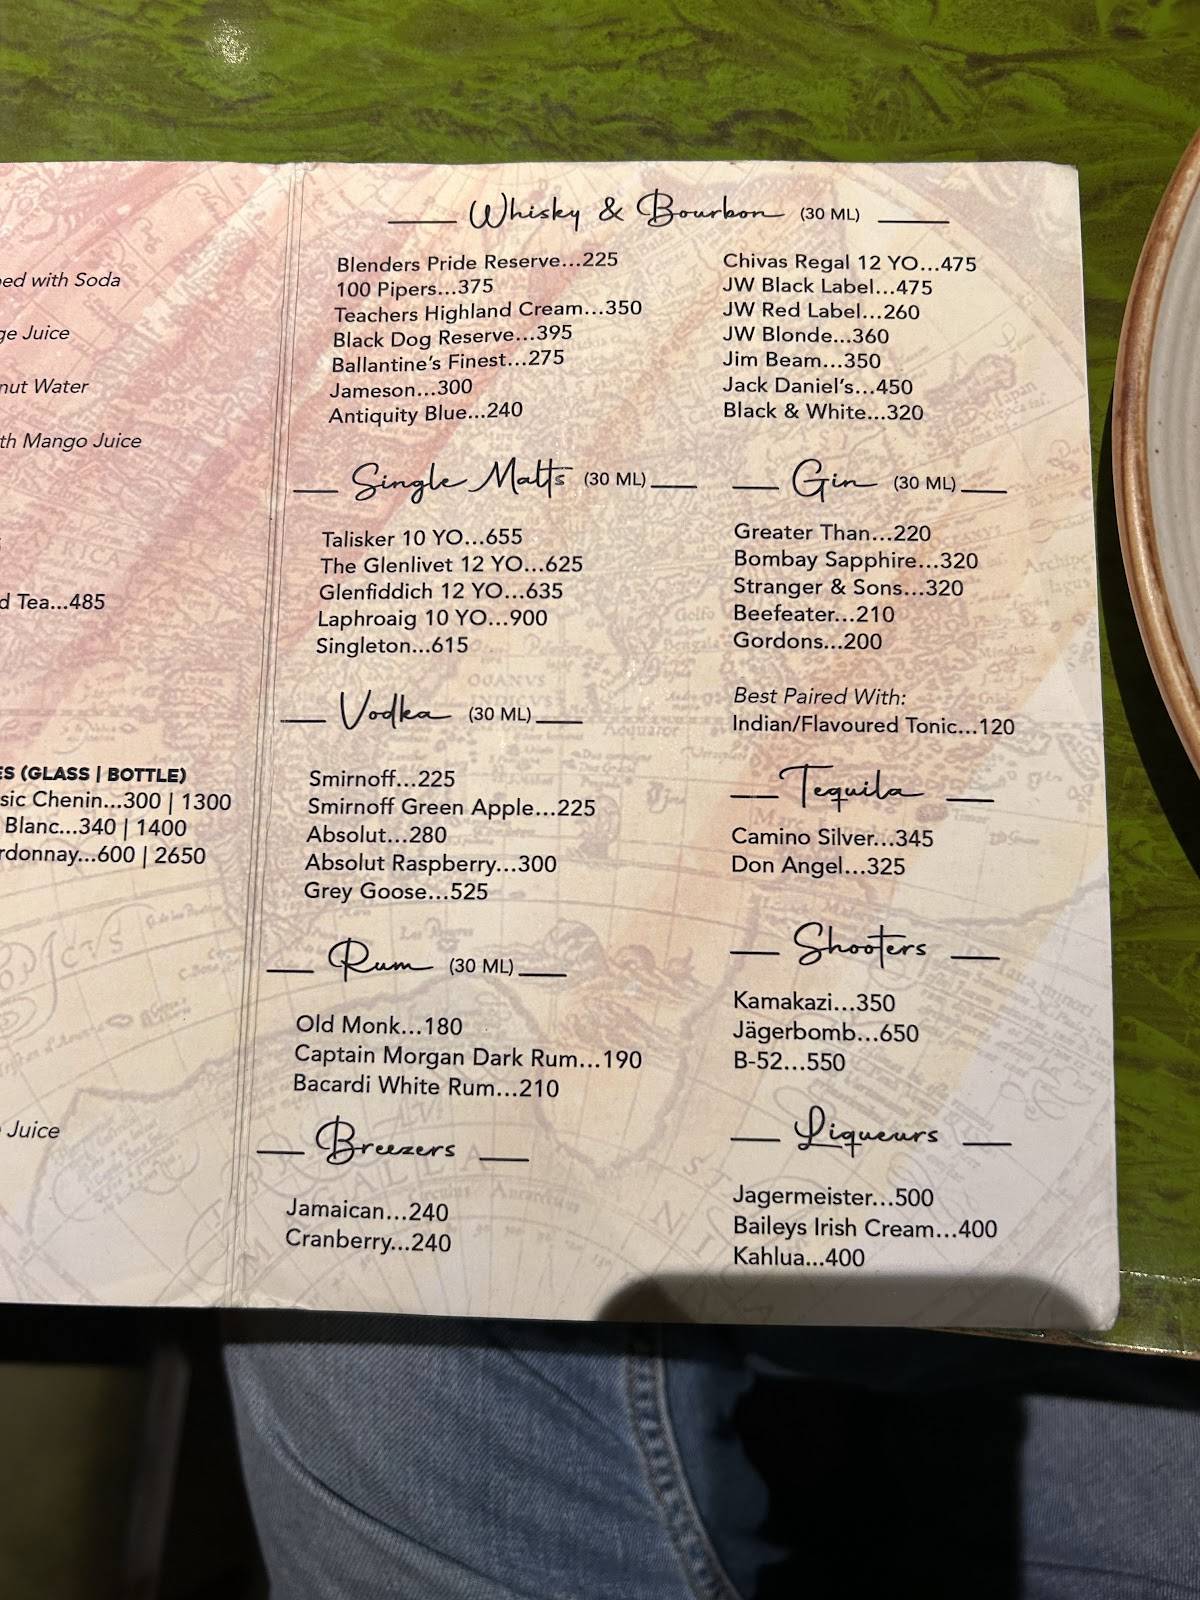 ed with Soda
ge Juice
nut Water
th Mango Juice
d Tea...485
ES (GLASS | BOTTLE)
sic Chenin...300 | 1300
Blanc...340 | 1400
rdonnay...600 | 2650
Juice
Whisky & Bourbon (30 ML)
Blenders Pride Reserve...225
100 Pipers...375
Teachers Highland Cream...350
Black Dog Reserve...395
Ballantine's Finest...275
Jameson...300
Antiquity Blue...240
Chivas Regal 12 YO...475
JW Black Label...475
JW Red Label...260
JW Blonde...360
Jim Beam...350
Jack Daniel's...450
Black & White...320
Single Malts (30 ML)
Talisker 10 YO...655
The Glenlivet 12 YO...625
Glenfiddich 12 YO...635
Laphroaig 10 YO...900
Singleton...615
Vodka (30 ML)
Smirnoff...225
Smirnoff Green Apple...225
Absolut...280
Absolut Raspberry...300
Grey Goose...525
Rum (30 ML)
Old Monk...180
Captain Morgan Dark Rum...190
Bacardi White Rum...210
Breezers
Jamaican...240
Cranberry...240
Gin (30 ML)
Greater Than...220
Bombay Sapphire...320
Stranger & Sons...320
Beefeater...210
Gordons...200
Best Paired With:
Indian/Flavoured Tonic...120
Tequila
Camino Silver...345
Don Angel...325
Shooters
Kamakazi...350
Jägerbomb...650
B-52...550
Liqueurs
Jagermeister...500
Baileys Irish Cream...400
Kahlua...400